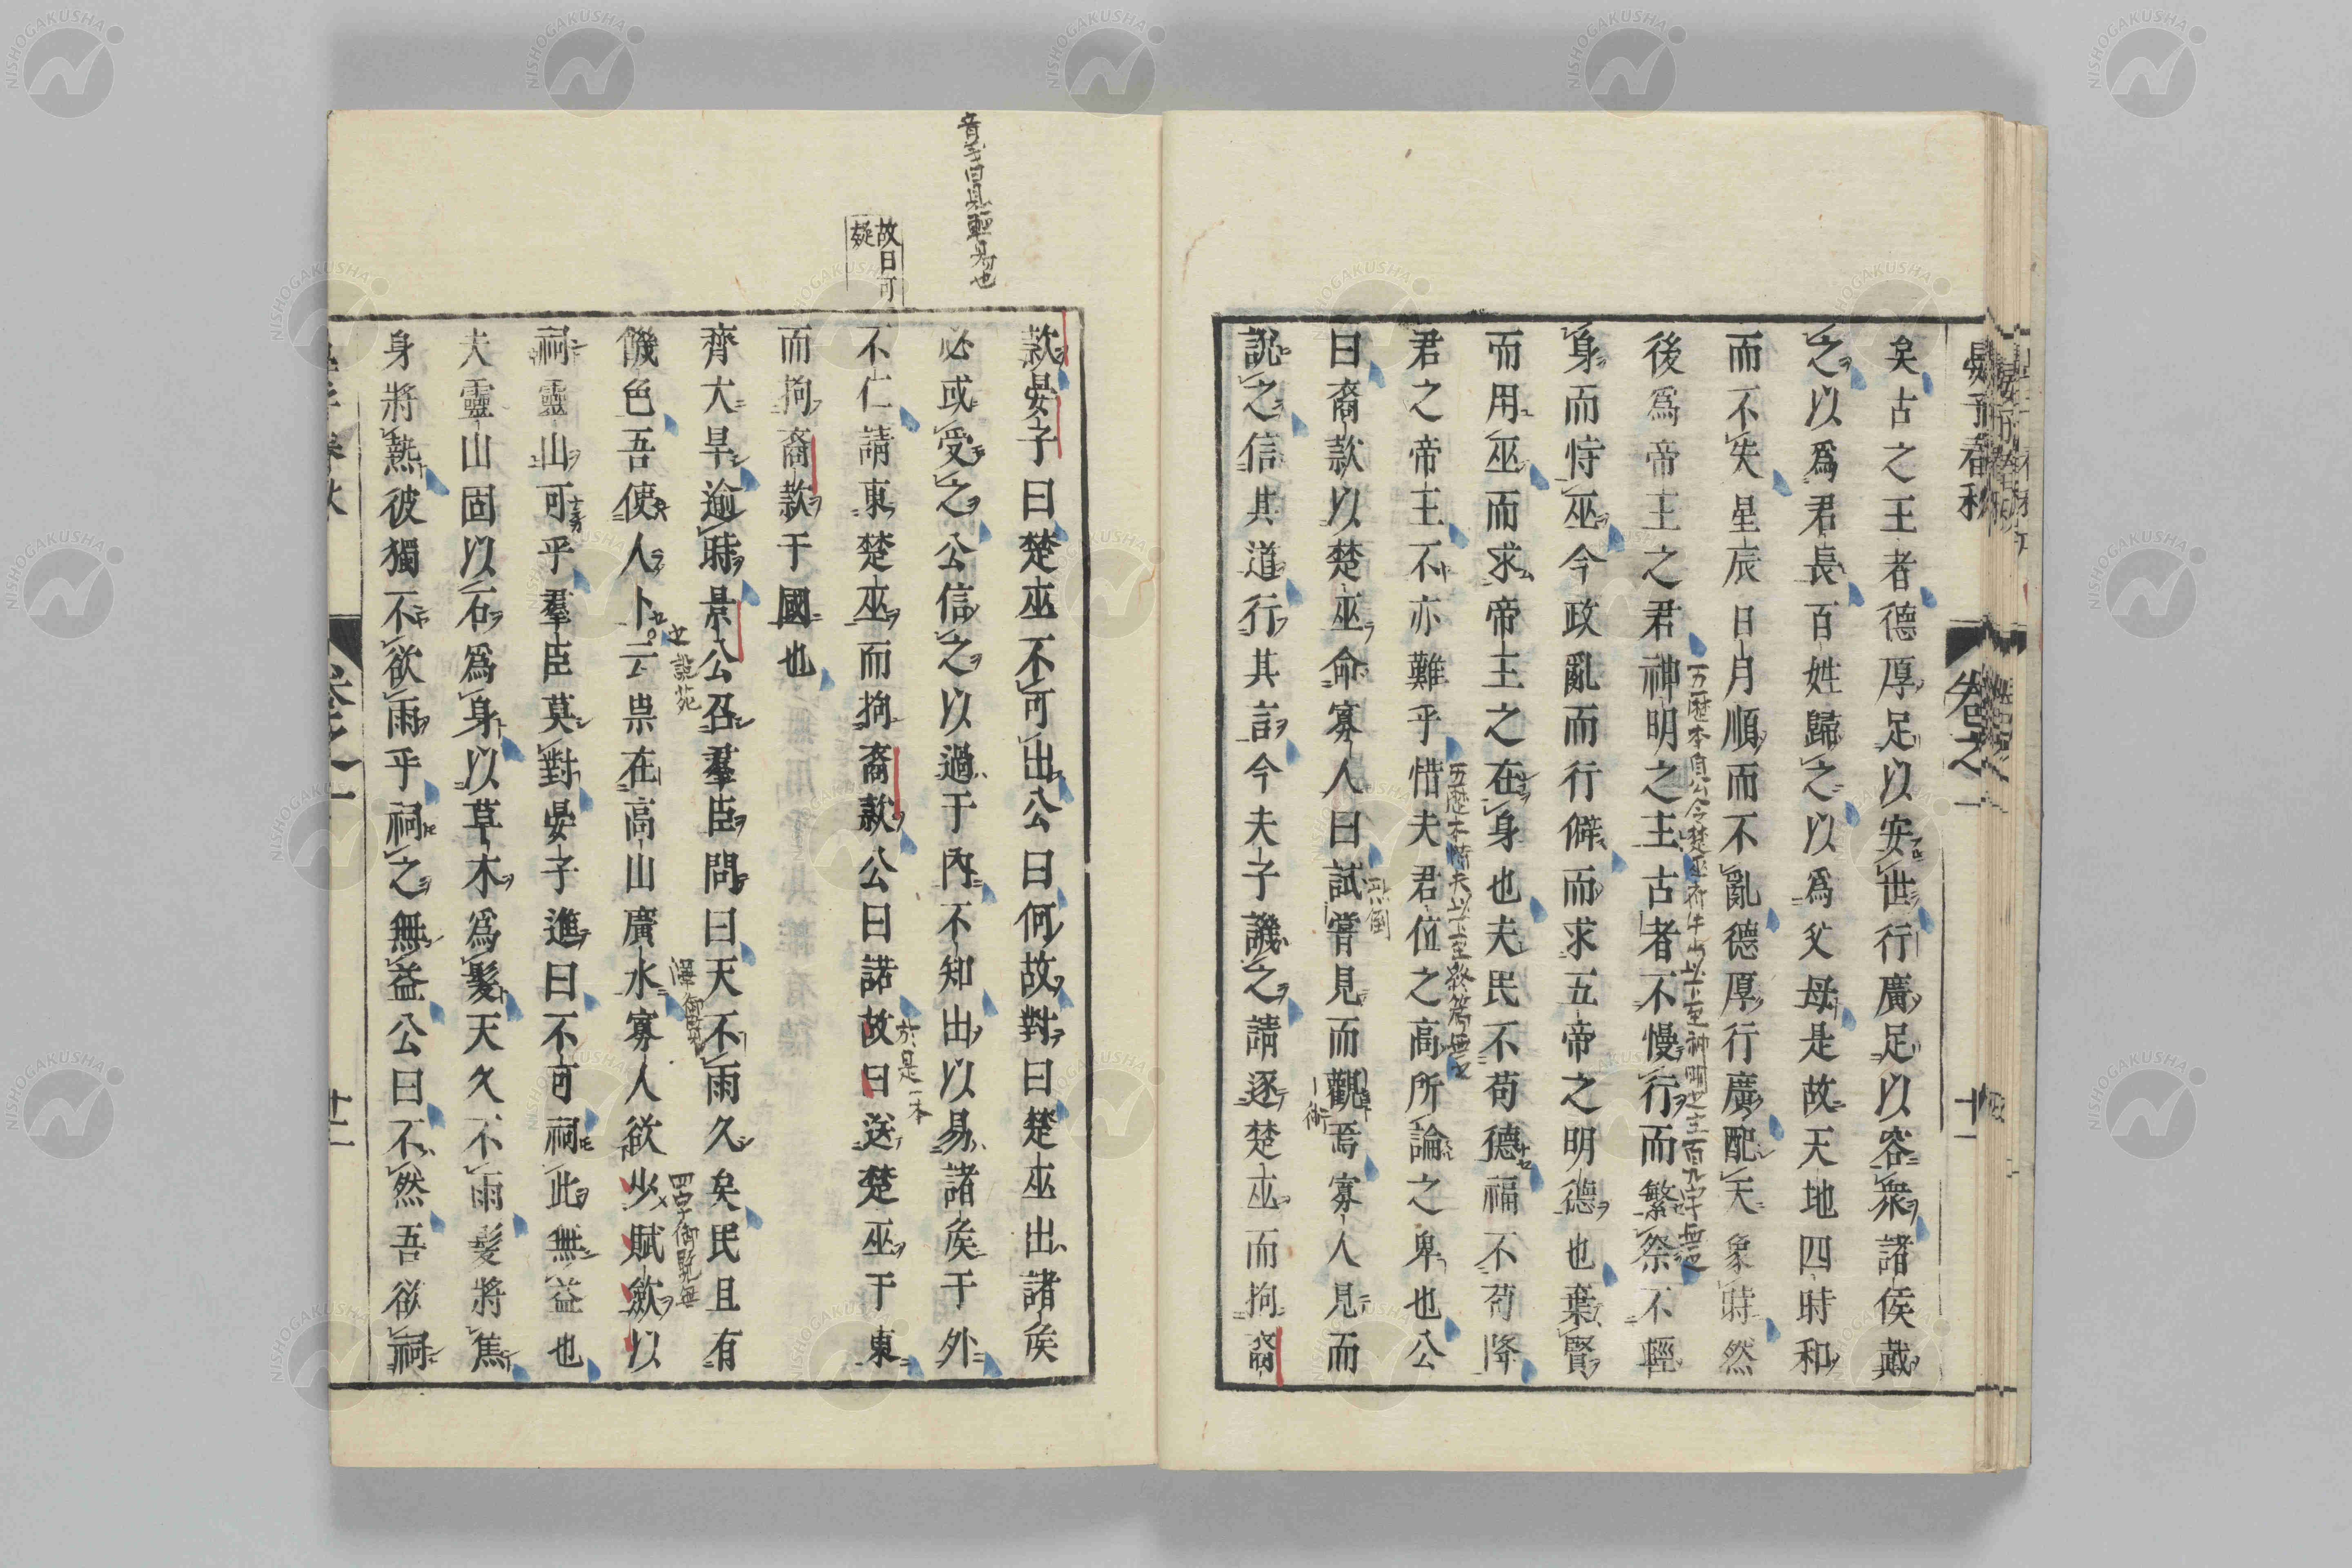 晏子春秋
卷之一
十一
矣古之王者德厚足以安世行廣足以容衆諸侯戴
之以爲君長百姓歸之以爲父母是故天地四時和
而不失星辰日月順而不亂德厚行廣配天象時然
後爲帝王之君神明之主古者不慢行而繁祭不輕
身而恃巫今政亂而行僻而求五帝之明德也棄賢
而用巫而求帝王之在身也夫民不苟德福不苟降
君之帝王不亦難乎惜夫君位之高所論之卑也公
曰裔款以楚巫命寡人曰試嘗見而觀焉寡人見而
說之信其道行其言今夫子譏之請逐楚巫而拘裔
款晏子曰楚巫不可出公曰何故對曰楚巫出諸矦
必或受之公信之以過于內不知出以易諸矦于外
不仁請東楚巫而拘裔款公曰諾故曰送楚巫于東
而拘裔款于國也
齊大旱逾時景公召羣臣問曰天不雨久矣民且有
饑色吾使人卜云祟在高山廣水寡人欲少賦斂以
祠靈山可乎羣臣莫對晏子進曰不可祠此無益也
夫靈山固以石爲身以草木爲髮天久不雨髮將焦
身將熱彼獨不欲雨乎祠之無益公曰不然吾欲祠
晏子春秋
卷之一
十二
故曰可
疑
於是一本
之說苑
澤御覽
四字御覽無